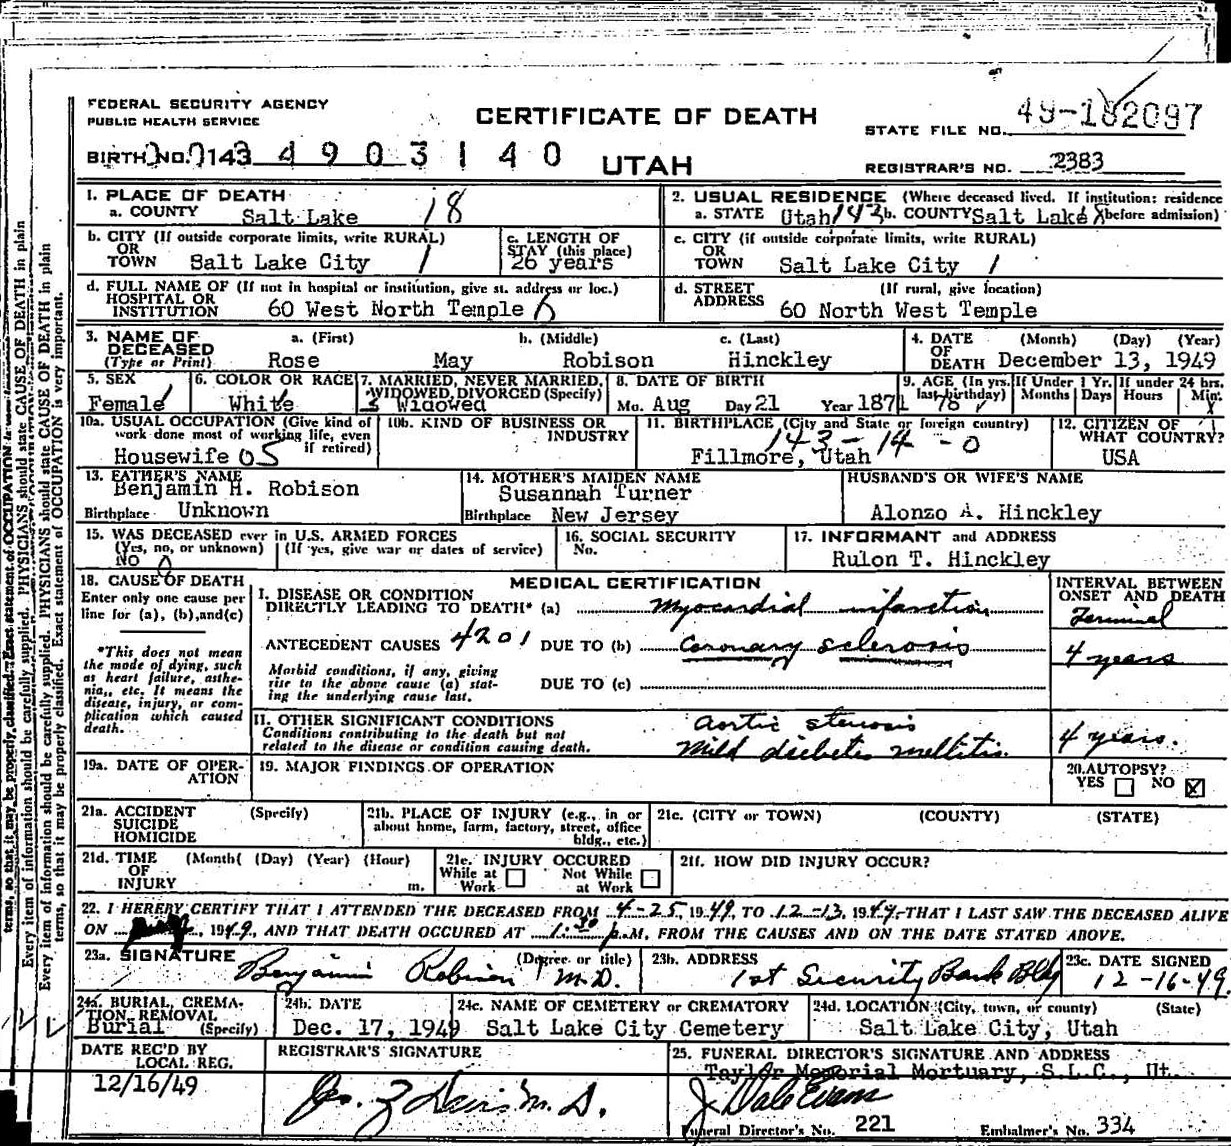 FEDERAL SECURITY AGENCY
PUBLIC HEALTH SERVICE
CERTIFICATE OF DEATH
STATE FILE NO. 49-182097
BIRTH NO. 143 4 9 0 3 1 4 0
UTAH
REGISTRAR'S NO. 2383
1. PLACE OF DEATH
a. COUNTY Salt Lake 18
2. USUAL RESIDENCE (Where deceased lived. If institution: residence
a. STATE Utah 143 b. COUNTY Salt Lake before admission)
b. CITY (If outside corporate limits, write RURAL)
OR
TOWN Salt Lake City 1
c. LENGTH OF
STAY (this place)
26 years
c. CITY (if outside corporate limits, write RURAL)
OR
TOWN Salt Lake City 1
d. FULL NAME OF (If not in hospital or institution, give st. address or loc.)
HOSPITAL OR
INSTITUTION 60 West North Temple 6
d. STREET (If rural, give location)
ADDRESS 60 North West Temple
3. NAME OF DECEASED (Type or Print)
a. (First) b. (Middle) c. (Last)
Rose May Robison Hinckley
4. DATE OF DEATH (Month) (Day) (Year)
December 13, 1949
5. SEX
Female 1
6. COLOR OR RACE
White
7. MARRIED, NEVER MARRIED,
WIDOWED, DIVORCED (Specify)
3 Widowed
8. DATE OF BIRTH
Mo. Aug Day 21 Year 1871
9. AGE (In yrs. last birthday) 78
If Under 1 Yr. Months Days
If under 24 hrs. Hours Min.
10a. USUAL OCCUPATION (Give kind of
work done most of working life, even
if retired)
Housewife 05
10b. KIND OF BUSINESS OR
INDUSTRY
11. BIRTHPLACE (City and State or foreign country)
143-14-0
Fillmore, Utah
12. CITIZEN OF
WHAT COUNTRY?
USA
13. FATHER'S NAME
Benjamin H. Robison
Birthplace Unknown
14. MOTHER'S MAIDEN NAME
Susannah Turner
Birthplace New Jersey
HUSBAND'S OR WIFE'S NAME
Alonzo A. Hinckley
15. WAS DECEASED ever in U.S. ARMED FORCES
(Yes, no, or unknown) (If yes, give war or dates of service)
No 0
16. SOCIAL SECURITY
No.
17. INFORMANT and ADDRESS
Rulon T. Hinckley
18. CAUSE OF DEATH
Enter only one cause per
line for (a), (b), and (c)
*This does not mean
the mode of dying, such
as heart failure, asthe-
nia,, etc. It means the
disease, injury, or com-
plication which caused
death.
MEDICAL CERTIFICATION
INTERVAL BETWEEN
ONSET AND DEATH
I. DISEASE OR CONDITION
DIRECTLY LEADING TO DEATH* (a) Myocardial infarction Terminal
ANTECEDENT CAUSES 4201 DUE TO (b) Coronary sclerosis 4 years
Morbid conditions, if any, giving
rise to the above cause (a) stat-
ing the underlying cause last.
DUE TO (c)
II. OTHER SIGNIFICANT CONDITIONS
Conditions contributing to the death but not
related to the disease or condition causing death.
Aortic stenosis
Mild diabetis mellitis. 4 years.
19a. DATE OF OPER-
ATION
19. MAJOR FINDINGS OF OPERATION
20. AUTOPSY?
YES NO
21a. ACCIDENT (Specify)
SUICIDE
HOMICIDE
21b. PLACE OF INJURY (e.g., in or
about home, farm, factory, street, office
bldg., etc.)
21c. (CITY or TOWN) (COUNTY) (STATE)
21d. TIME (Month( (Day) (Year) (Hour)
OF
INJURY m.
21e. INJURY OCCURED
While at Work Not While at Work
21f. HOW DID INJURY OCCUR?
22. I HEREBY CERTIFY THAT I ATTENDED THE DECEASED FROM 4-25, 1949, TO 12-13, 1949, THAT I LAST SAW THE DECEASED ALIVE
ON 1949, AND THAT DEATH OCCURED AT 1:30 p.M, FROM THE CAUSES AND ON THE DATE STATED ABOVE.
23a. SIGNATURE (Degree or title)
Benjamin Robison M.D.
23b. ADDRESS
1st Security Bank Bldg
23c. DATE SIGNED
12-16-49.
24a. BURIAL, CREMA-
TION, REMOVAL
Burial (Specify)
24b. DATE
Dec. 17, 1949
24c. NAME OF CEMETERY or CREMATORY
Salt Lake City Cemetery
24d. LOCATION (City, town, or county) (State)
Salt Lake City, Utah
DATE REC'D BY
LOCAL REG.
12/16/49
REGISTRAR'S SIGNATURE
M.D.
25. FUNERAL DIRECTOR'S SIGNATURE AND ADDRESS
Taylor Memorial Mortuary, S.L.C., Ut.
J Dale Evans
Funeral Director's No. 221 Embalmer's No. 334
Every item of information should be carefully supplied. PHYSICIANS should state CAUSE OF DEATH in plain
terms, so that it may be properly classified. Exact statement of OCCUPATION is very important.